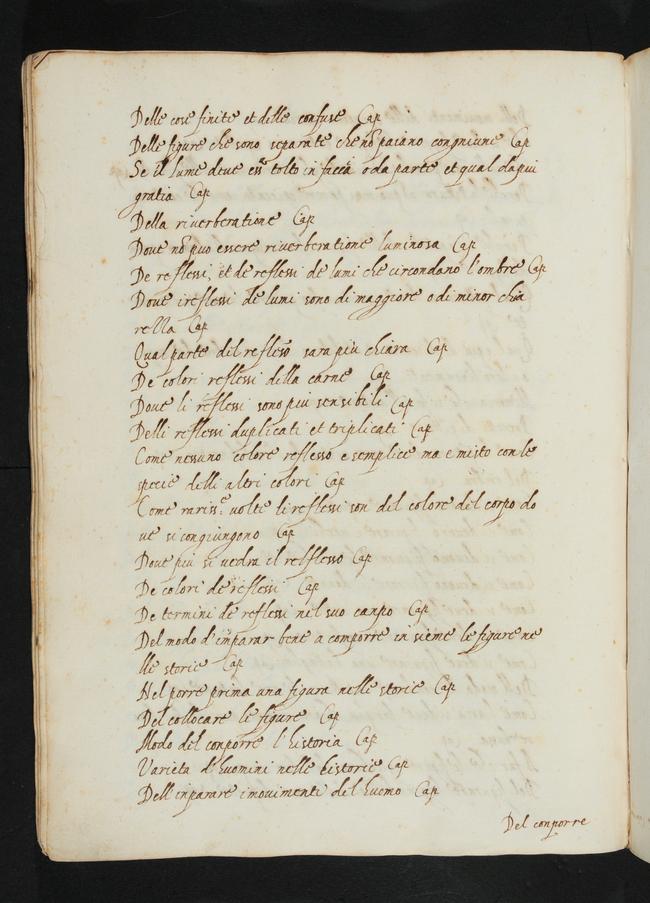 Delle cose finite et delle confuse Cap
Delle figure che sono separate che nō paiano congniune Cap
Se il lume deve ess.r tolto in facca o da parte et qual da piu
gratia Cap
Della riverberatione Cap
Dove nō puo essere riverberatione luminosa Cap
De reflessi et de reflessi de lumi che circondano l'ombre Cap
Dove i reflessi de lumi sono di maggiore o di minor chia
rella Cap
Qual parte del reflesso sara piu chiara Cap
De colori reflessi della carne Cap
Dove li reflessi sono piu sensibili Cap
Delli reflessi duplicati et triplicati Cap
Come nessuno colore reflesso e semplice ma e misto con le
specie delli altri colori Cap
Come rariss.e volte li reflessi son del colore del corpo do
ve si congiungono Cap
Dove piu si vedra il relflesso Cap
De colori de reflessi Cap
De termini de reflessi nel suo canpo Cap
Del modo d'imparar bene a comporre in sieme le figure ne
lle storie Cap
Nel porre prima una figura nelle storie Cap
Del collocare le figure Cap
Modo del conporre l'historia Cap
Varieta d'huomini nelle historie Cap
Dell inparare i movimenti del huomo Cap
Del conporre